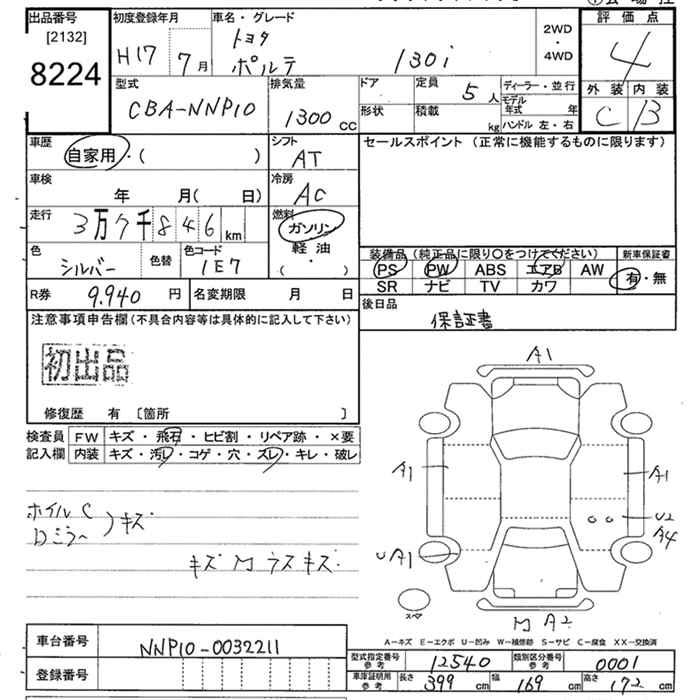 出品番号
[2132]
8224
初度登録年月
H17 7月
車名・グレード
トヨタ
ポルテ 130i
2WD
・
4WD
評価点
4
外装 内装
C B
型式
CBA-NNP10
排気量
1300 cc
ドア
形状
定員 5人
積載 kg
ディーラー・並行
モデル年式 年
ハンドル 左・右
車歴
自家用・( )
シフト
AT
セールスポイント(正常に機能するものに限ります)
車検
年 月( 日)
冷房
AC
走行
3万7千846 km
燃料
ガソリン
軽油
( ・ )
色
シルバー
色替
色コード
1E7
装備品(純正品に限り○をつけてください)
新車保証書
PS PW ABS エアB AW
SR ナビ TV カワ
有・無
R券 9.940 円
名変期限 月 日
後日品
保証書
注意事項申告欄(不具合内容等は具体的に記入して下さい)
初出品
修復歴 有 〔箇所 〕
検査員
記入欄
FW キズ・飛石・ヒビ割・リペア跡・×要
内装 キズ・汚レ・コゲ・穴・スレ・キレ・破レ
ホイルC
Dミラー
キズ
キズ M ラス キズ
A1
A1
A1
U2
A4
UA1
スペア
M A2
A-キズ E-エクボ U-凹み W-補修跡 S-サビ C-腐食 XX-交換済
車台番号 NNP10-0032211
登録番号
型式指定番号
参考
12540
類別区分番号
参考
0001
車庫証明用
参考
長さ 399 cm
幅 169 cm
高さ 172 cm